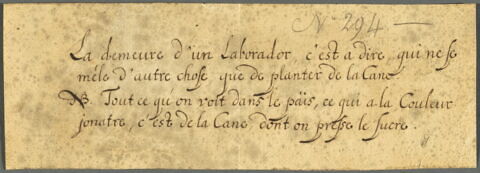 No 294 —
La demeure d'un Laborador, c'est a dire, qui ne se
mêle d'autre chose que de planter de la Cane
NB. Tout ce qu'on voit dans le païs, ce qui a la Couleur
jonatre, c'est de la Cane dont on presse le sucre.